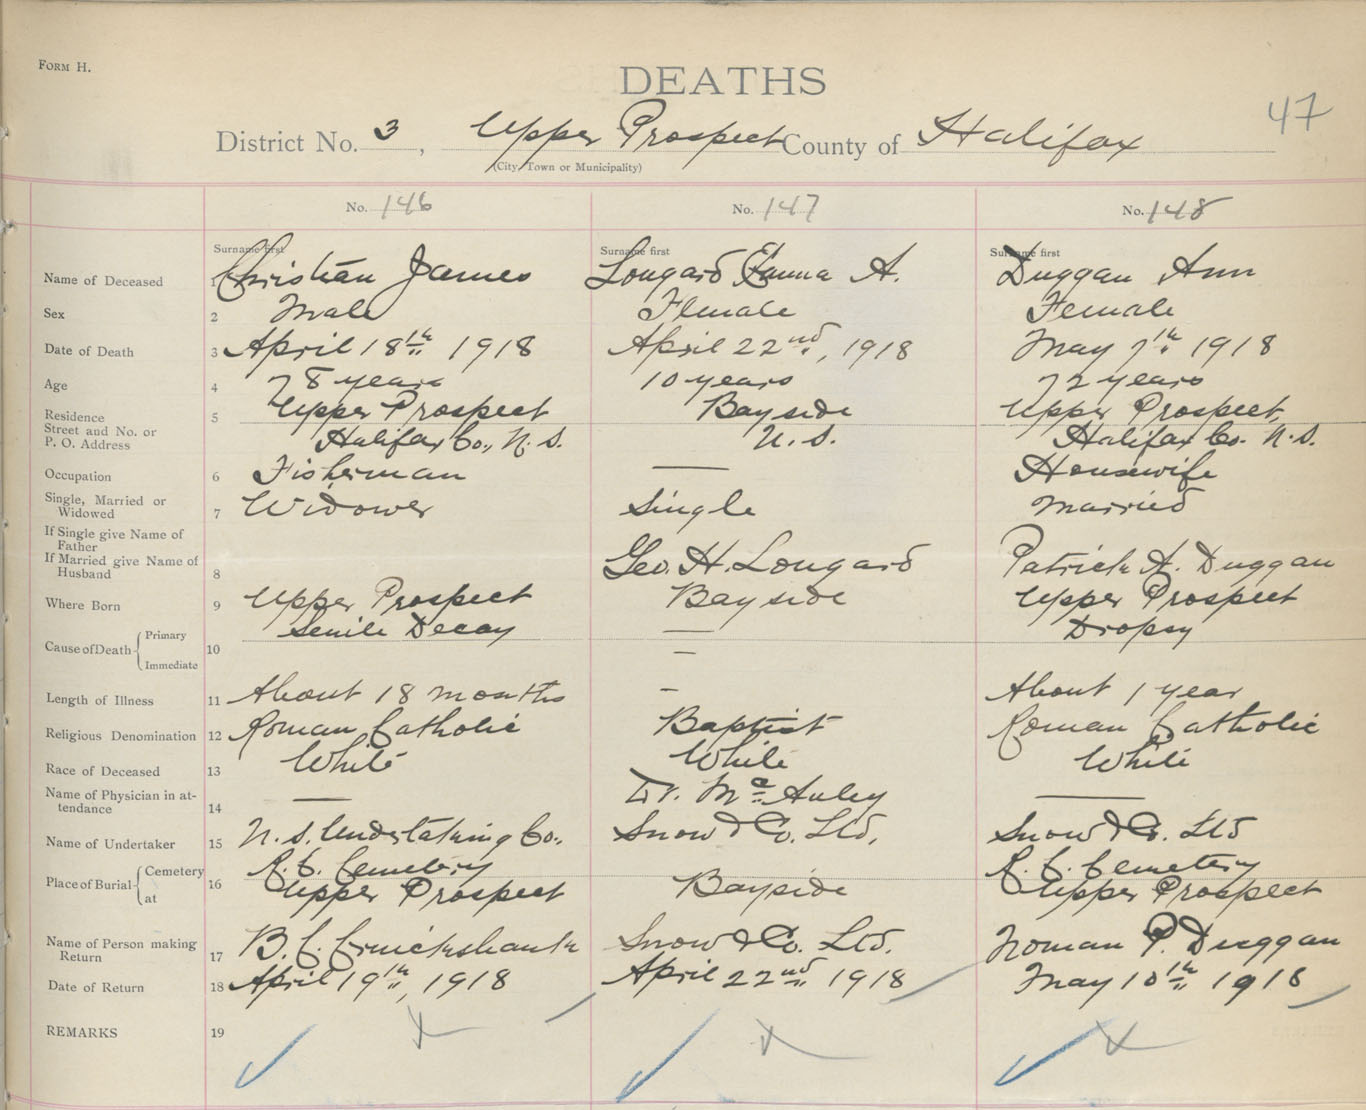 FORM H.
DEATHS
47
District No. 3, Upper Prospect County of Halifax
(City, Town or Municipality)
No. 146 No. 147 No. 148
Surname first Surname first Surname first
Name of Deceased 1 Christian James Lougard Emma A. Duggan Ann
Sex 2 Male Female Female
Date of Death 3 April 18th 1918 April 22nd, 1918 May 7th 1918
Age 4 78 years 10 years 72 years
Residence 5 Upper Prospect Bayside Upper Prospect,
Street and No. or
P. O. Address Halifax Co., N. S. N. S. Halifax Co. N. S.
Occupation 6 Fisherman — Housewife
Single, Married or
Widowed 7 Widower Single Married
If Single give Name of
Father
If Married give Name of
Husband 8 Geo. H. Lougard Patrick A. Duggan
Where Born 9 Upper Prospect Bayside Upper Prospect
Cause of Death Primary 10 Senile Decay — Dropsy
Immediate –
Length of Illness 11 About 18 months – About 1 year
Religious Denomination 12 Roman Catholic Baptist Roman Catholic
Race of Deceased 13 White White White
Name of Physician in at-
tendance 14 — Dr. McAuley —
Name of Undertaker 15 N. S. Undertaking Co., Snow & Co. Ltd, Snow & Co. Ltd
Place of Burial Cemetery 16 R. C. Cemetery R. C. Cemetery
at Upper Prospect Bayside Upper Prospect
Name of Person making
Return 17 B. C. Cruickshank Snow & Co. Ltd. Noman P. Duggan
Date of Return 18 April 19th, 1918 April 22nd 1918 May 10th 1918
REMARKS 19